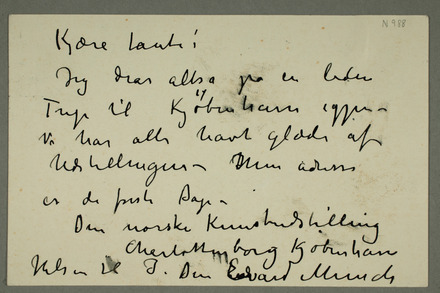 N 988
Kjære tante!
Jeg drar altså på en liden
Trip til Kjöbenhavn igjen –
vi har alle havt glæde af
Udstillingen – Min adresse
er de første Dage –
Den norske Kunstudstilling
Charlottenborg Kjöbenhavn
Hilsen til I. Din Edvard Munch